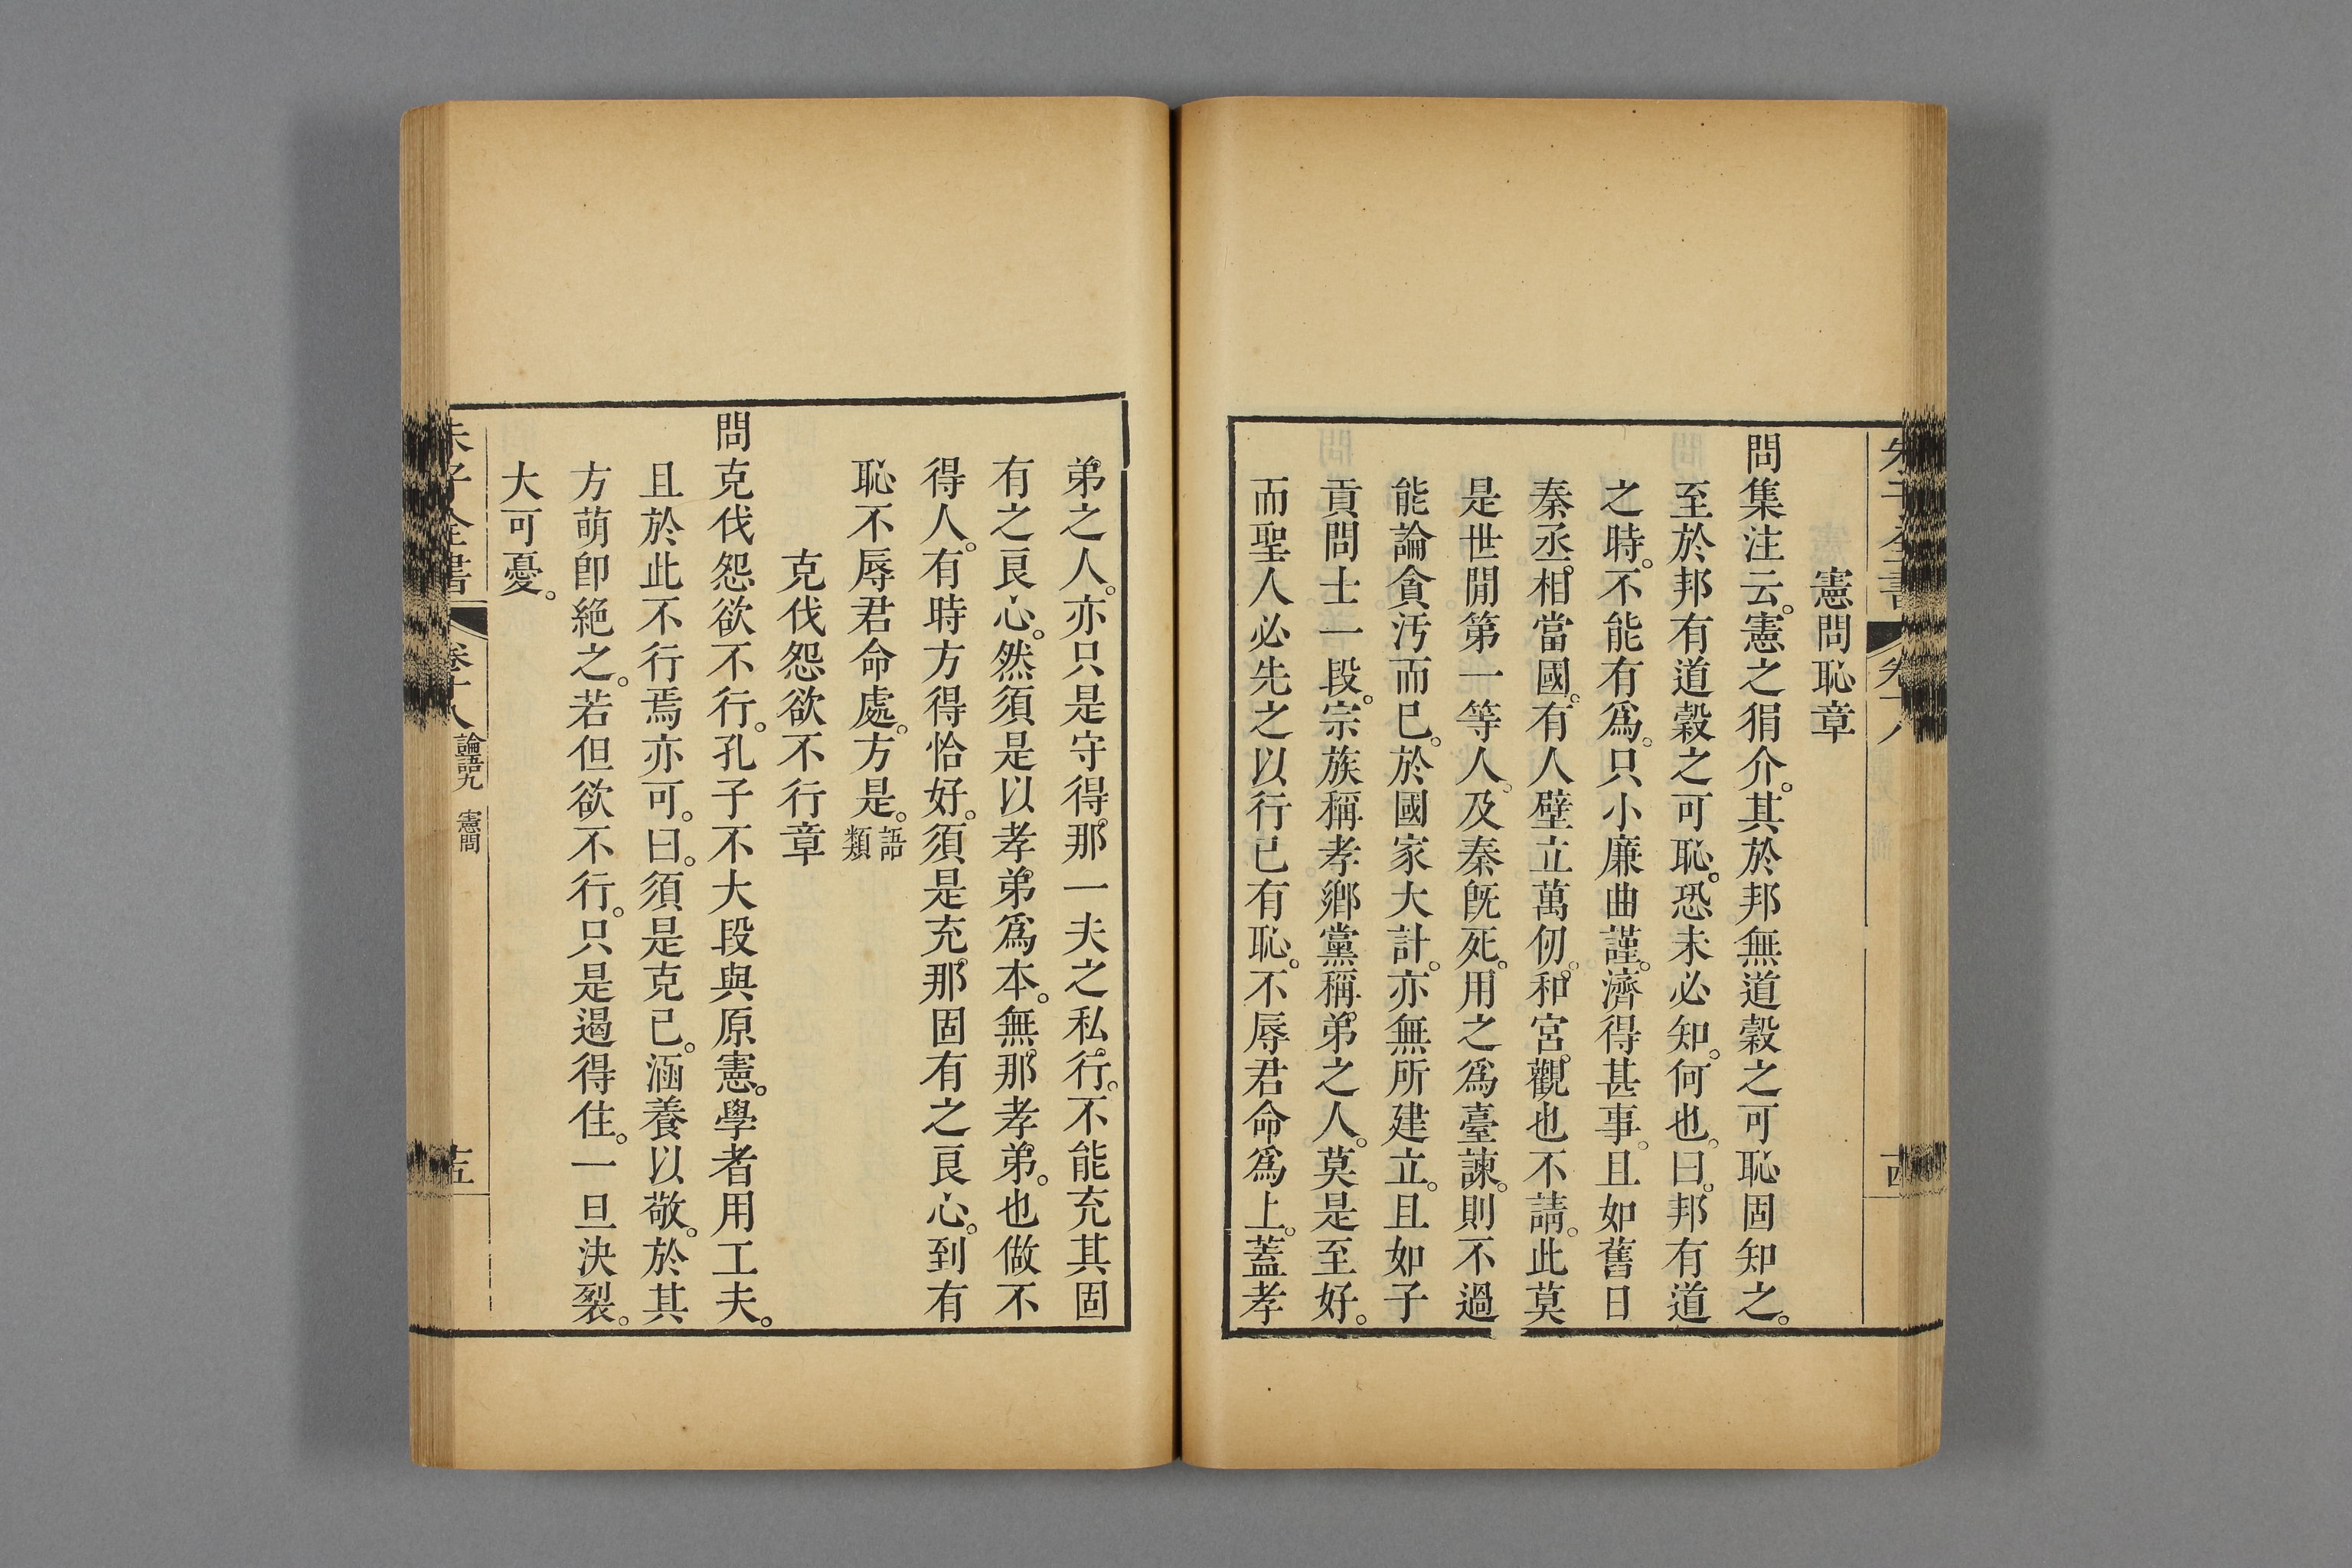 憲問恥章
問集注云。憲之狷介。其於邦無道穀之可恥固知之。
至於邦有道穀之可恥。恐未必知。何也。曰。邦有道
之時。不能有爲。只小廉曲謹。濟得甚事。且如舊日
秦丞相當國。有人壁立萬仞。和宮觀也不請。此莫
是世閒第一等人。及秦旣死。用之爲臺諫。則不過
能論貪汚而已。於國家大計。亦無所建立。且如子
貢問士一段。宗族稱孝鄉黨稱弟之人。莫是至好。
而聖人必先之以行己有恥。不辱君命爲上。蓋孝
弟之人。亦只是守得那一夫之私行。不能充其固
有之良心。然須是以孝弟爲本。無那孝弟。也做不
得人。有時方得恰好。須是充那固有之良心。到有
恥不辱君命處。方是。語類
克伐怨欲不行章
問克伐怨欲不行。孔子不大段與原憲。學者用工夫。
且於此不行焉亦可。曰。須是克己。涵養以敬。於其
方萌卽絕之。若但欲不行。只是遏得住。一旦決裂。
大可憂。
朱子全書 卷十八 論語九 憲問 十五